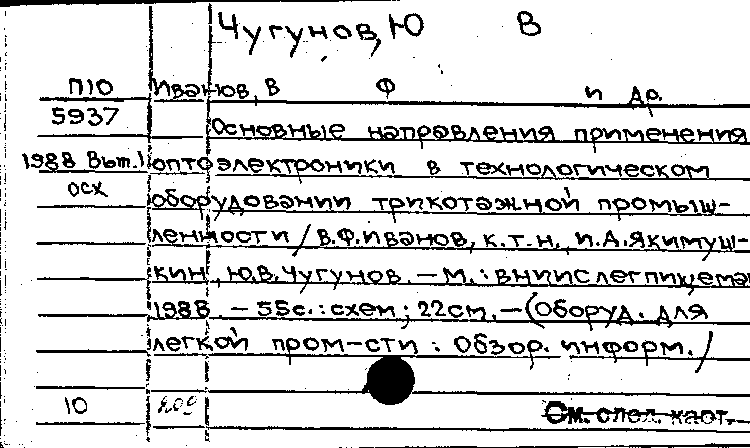 Чугунов, Ю В
П10 Иванов, В Ф и др.
5937 Основные направления применения
1988 Вып.1 оптоэлектроники в технологическом
осх оборудовании трикотажной промыш-
ленности / В.Ф.Иванов, к.т.н., И.А.Якимуш-
кин, Ю.В.Чугунов. – М.: ВНИИСлегпищема
1988. – 55с.: схем; 22см. – (Оборуд. для
легкой пром-сти: Обзор. информ./
10
См. след. карт.